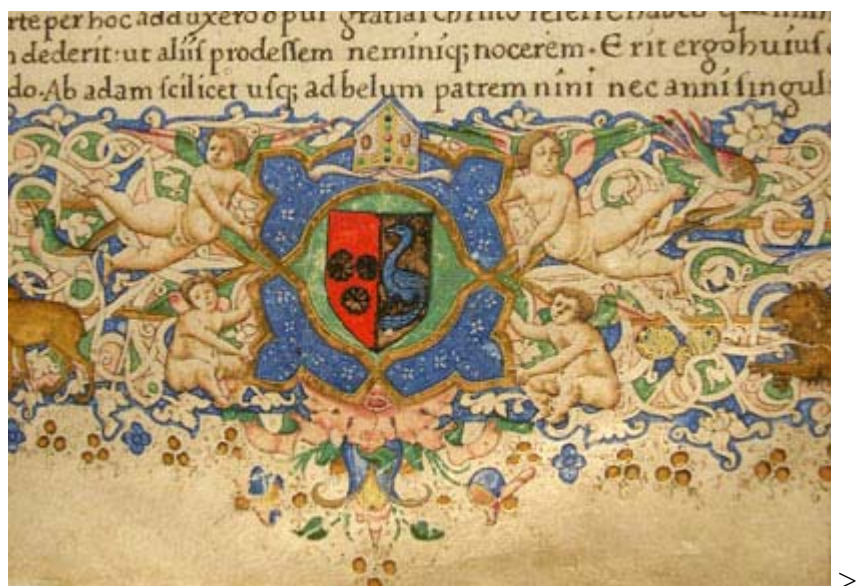 rte per hoc adduxero opur gratiai christo referre habeo
n dederit:ut aliiſ prodeſſem neminiq; nocerem·Erit ergo huiuſ
do·Ab adam ſcilicet uſq; ad belum patrem nini nec anni ſingul
>